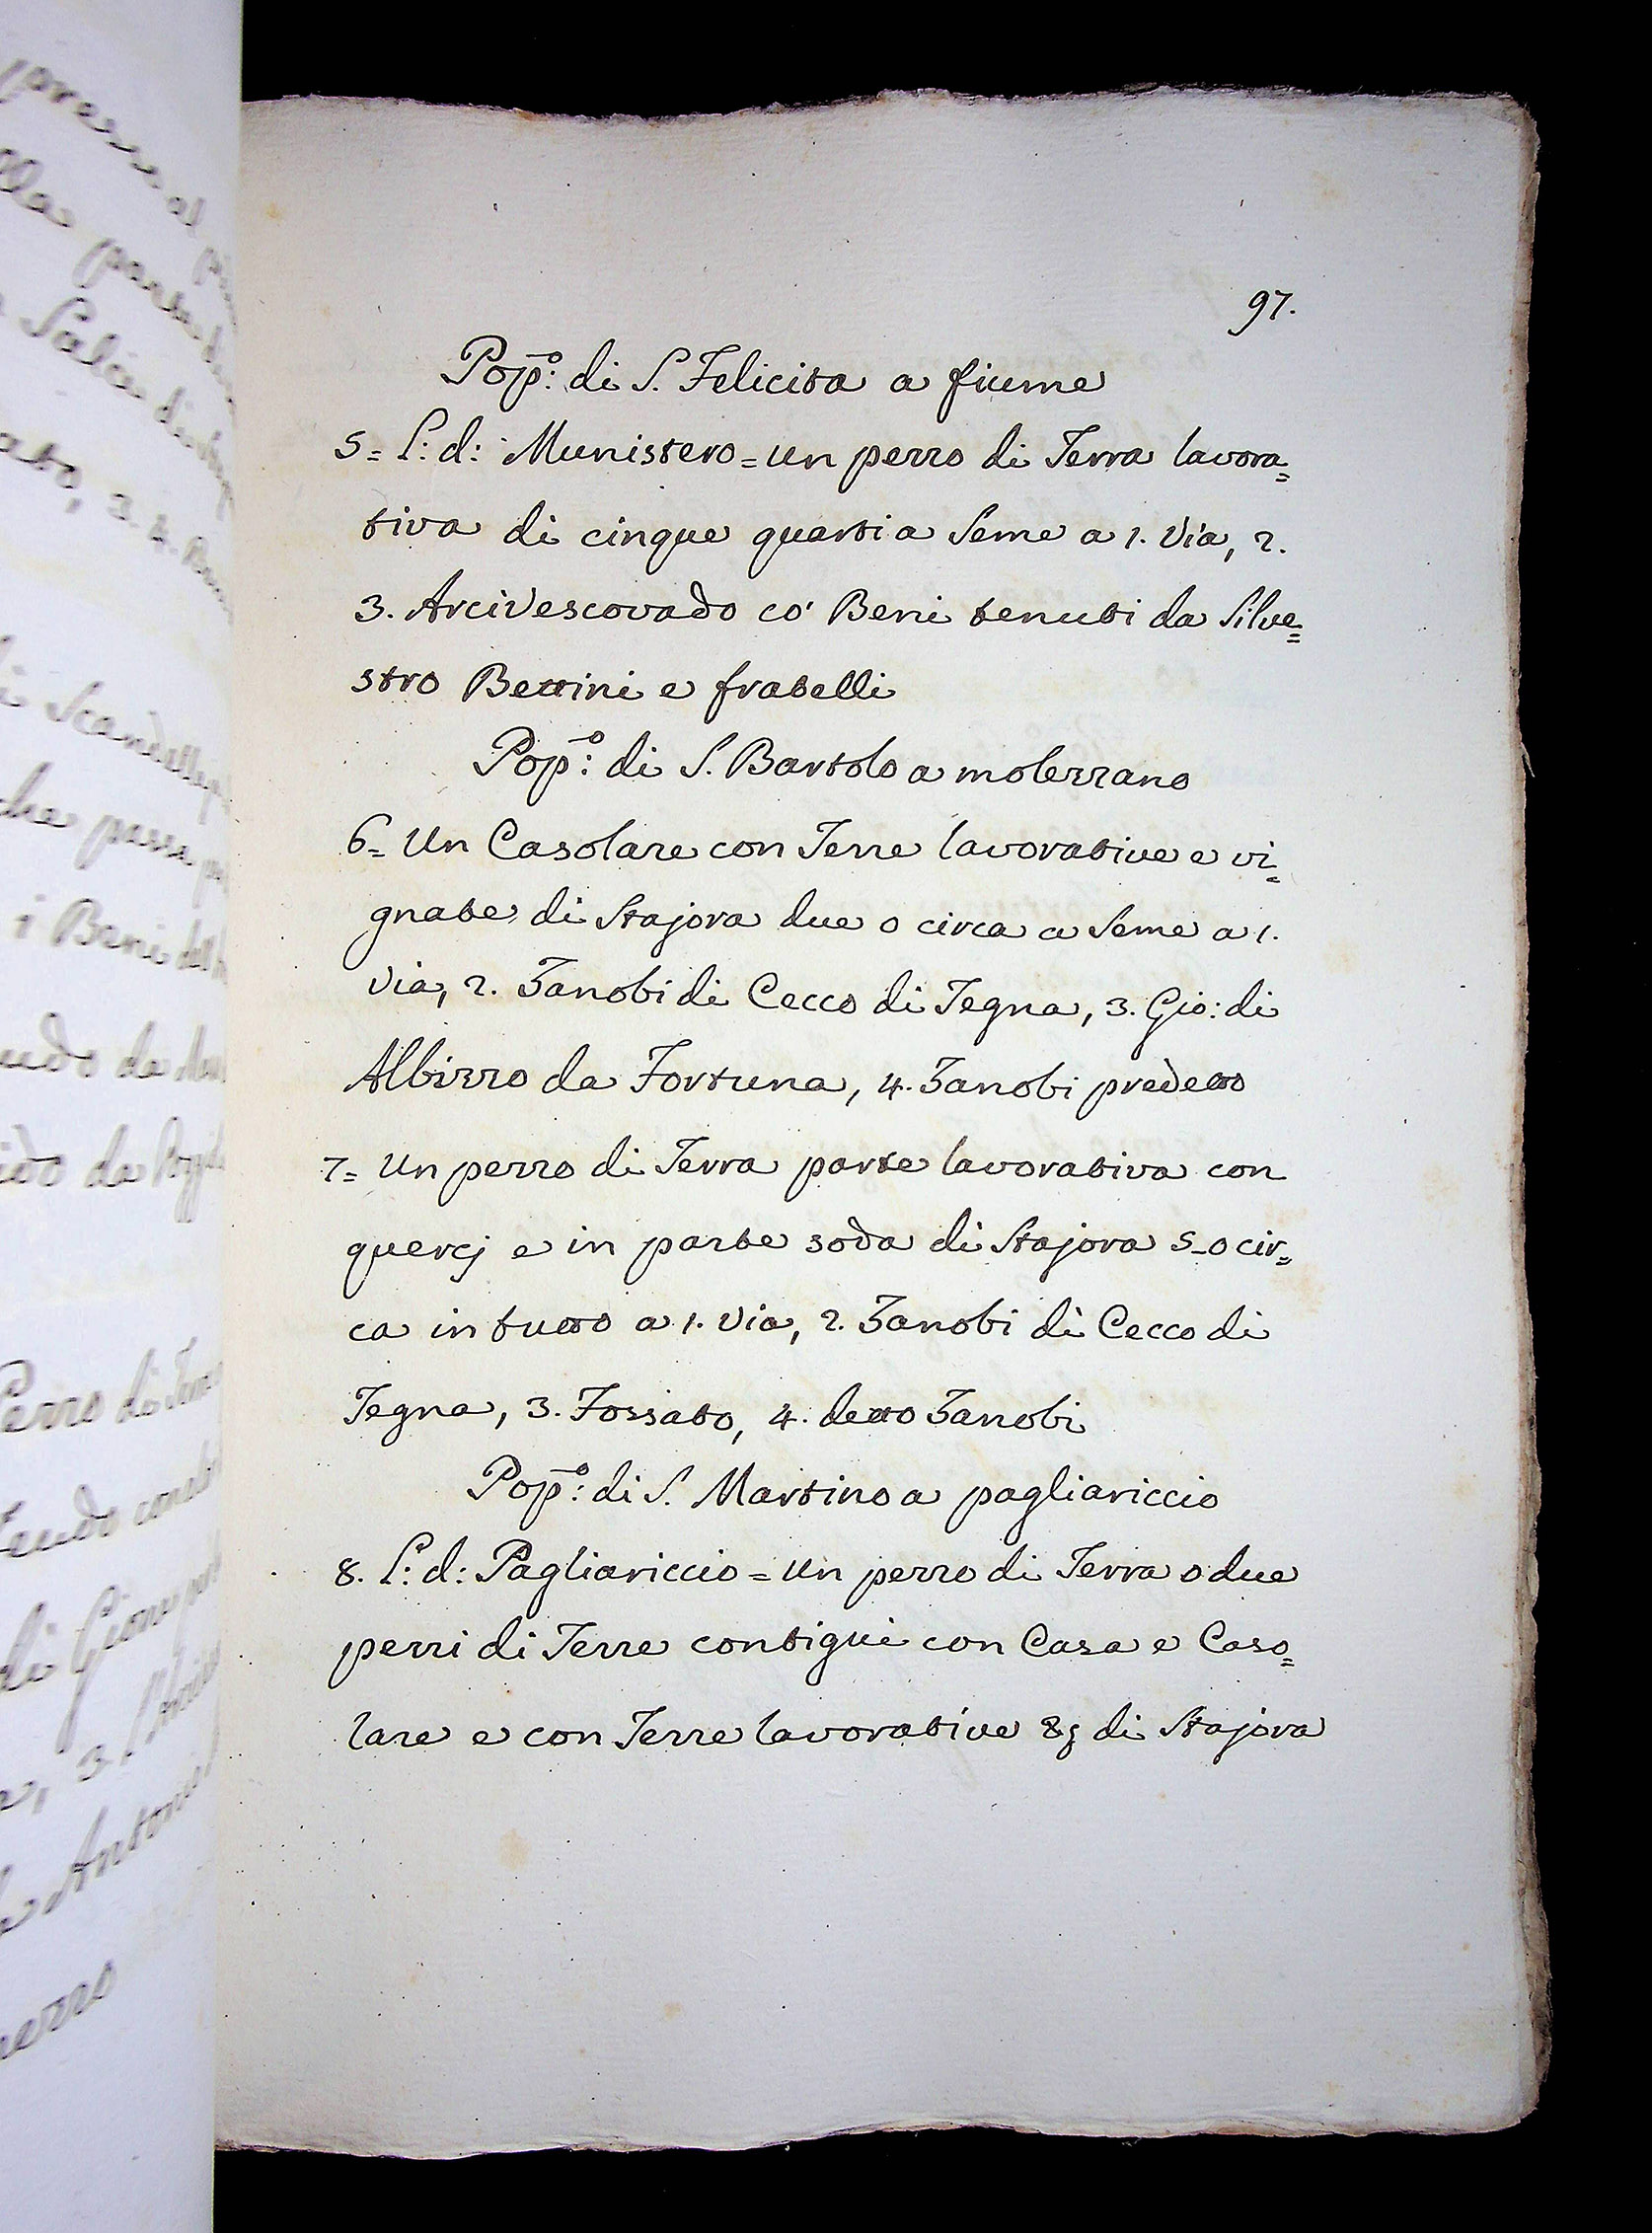 97.
Pop̄:º di S. Felicita a fiume
5= L: d: Munistero = un pezzo di Terra lavora=
tiva di cinque quarti a Seme a 1. Via, 2.
3. Arcivescovado co' Beni tenuti da Silve=
stro Bettini e fratelli
Pop̄:º di S. Bartolo a molezzano
6= Un Casolare con Terre lavorative e vi=
gnate di Stajora due o circa a Seme a 1.
Via, 2. Zanobi di Cecco di Tegna, 3. Gio: di
Albizzo da Fortuna, 4. Zanobi predetto
7= Un pezzo di Terra parte lavorativa con
quercj e in parte soda di Stajora 5- o cir=
ca in tutto a 1. Via, 2. Zanobi di Cecco di
Tegna, 3. Fossato, 4. detto Zanobi
Pop̄:º di S. Martino a pagliariccio
8. L: d: Pagliariccio = Un pezzo di Terra o due
pezzi di Terre contigui con Casa e Caso=
lare e con Terre lavorative &c di Stajora